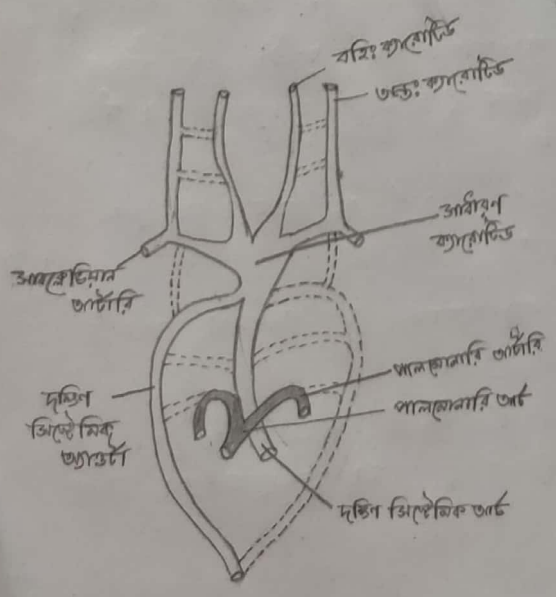 বহিঃ ক্যারোটিড
অন্তঃ ক্যারোটিড
সাধারণ
ক্যারোটিড
সাবক্লেভিয়ান
আর্টারি
পালমোনারি আর্টারি
পালমোনারি আর্চ
দক্ষিণ
সিস্টেমিক
অ্যাওর্টা
দক্ষিণ সিস্টেমিক আর্চ